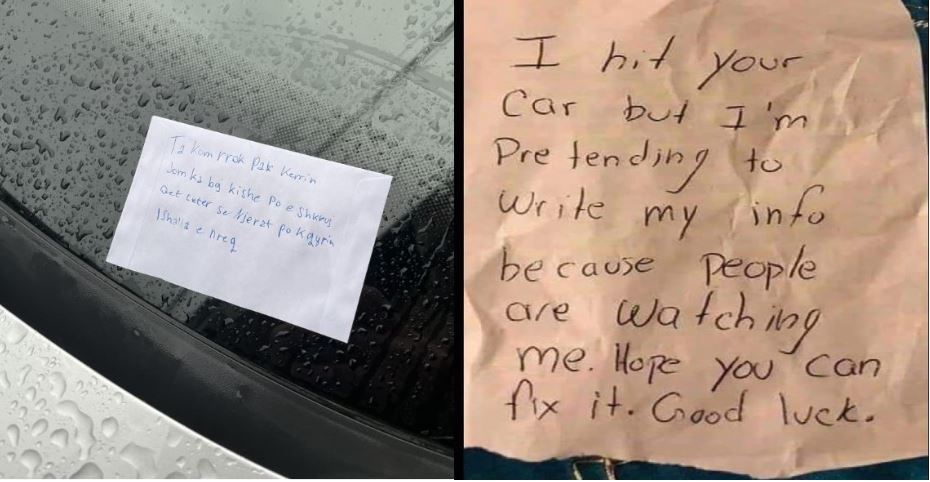 Ta kom rrok pak kerrin
Jom ka bg kishe po e shkruj
qet leter se tjerët po kqyrin
Ishalla e nreq
I hit your
Car but I'm
Pretending to
Write my info
because people
are watching
me. Hope you can
fix it. Good luck.